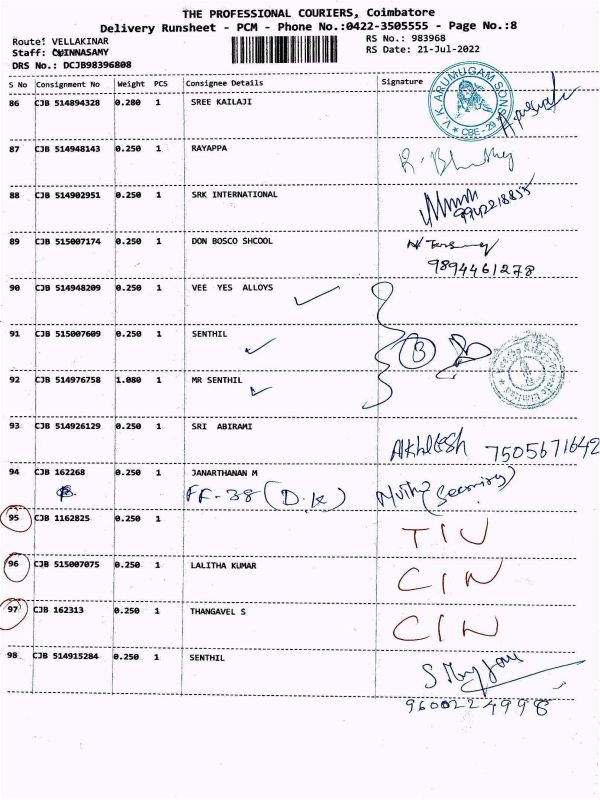 THE PROFESSIONAL COURIERS, Coimbatore
Delivery Runsheet - PCM - Phone No.:0422-3505555 - Page No.:8
Route: VELLAKINAR RS No.: 983968
Staff: CHINNASAMY RS Date: 21-Jul-2022
DRS No.: DCJB98396808
S No Consignment No Weight PCS Consignee Details Signature
86 CJB 514894328 0.280 1 SREE KAILAJI
V.K. ARUMUGAM SONS * CBE-29 *
87 CJB 514948143 0.250 1 RAYAPPA
88 CJB 514902951 0.250 1 SRK INTERNATIONAL
9942218855
89 CJB 515007174 0.250 1 DON BOSCO SHCOOL
9894461278
90 CJB 514948209 0.250 1 VEE YES ALLOYS
91 CJB 515007609 0.250 1 SENTHIL
B
92 CJB 514976758 1.080 1 MR SENTHIL
93 CJB 514926129 0.250 1 SRI ABIRAMI
Akhilesh 7505671642
94 CJB 162268 0.250 1 JANARTHANAN M
FF-38 (D.K) (Security)
95 CJB 1162825 0.250 1
TIU
96 CJB 515007075 0.250 1 LALITHA KUMAR
CIN
97 CJB 162313 0.250 1 THANGAVEL S
CIN
98 CJB 514915284 0.250 1 SENTHIL
9600224998